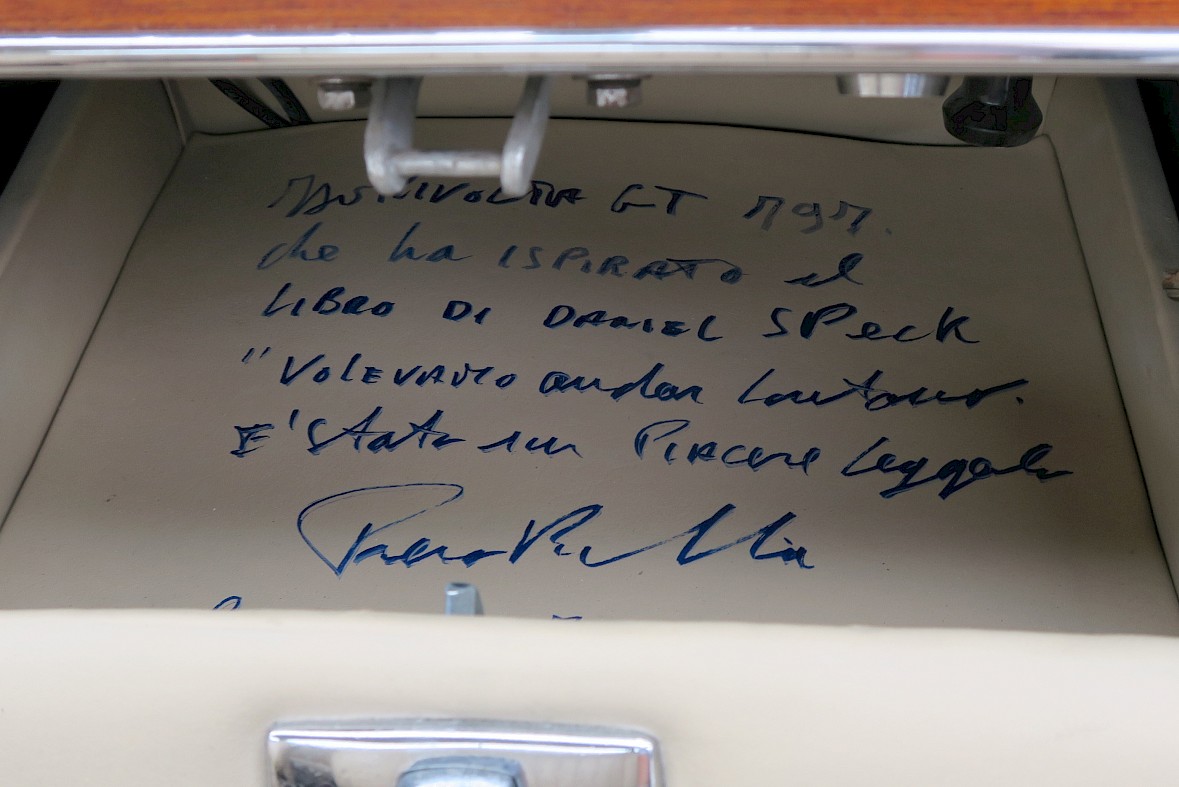 GT 797.
che ha ISPIRATO il
LIBRO DI DANIEL SPeck
"VOLEVAMO andar lontano.
E' stato un PIACERE leggerlo